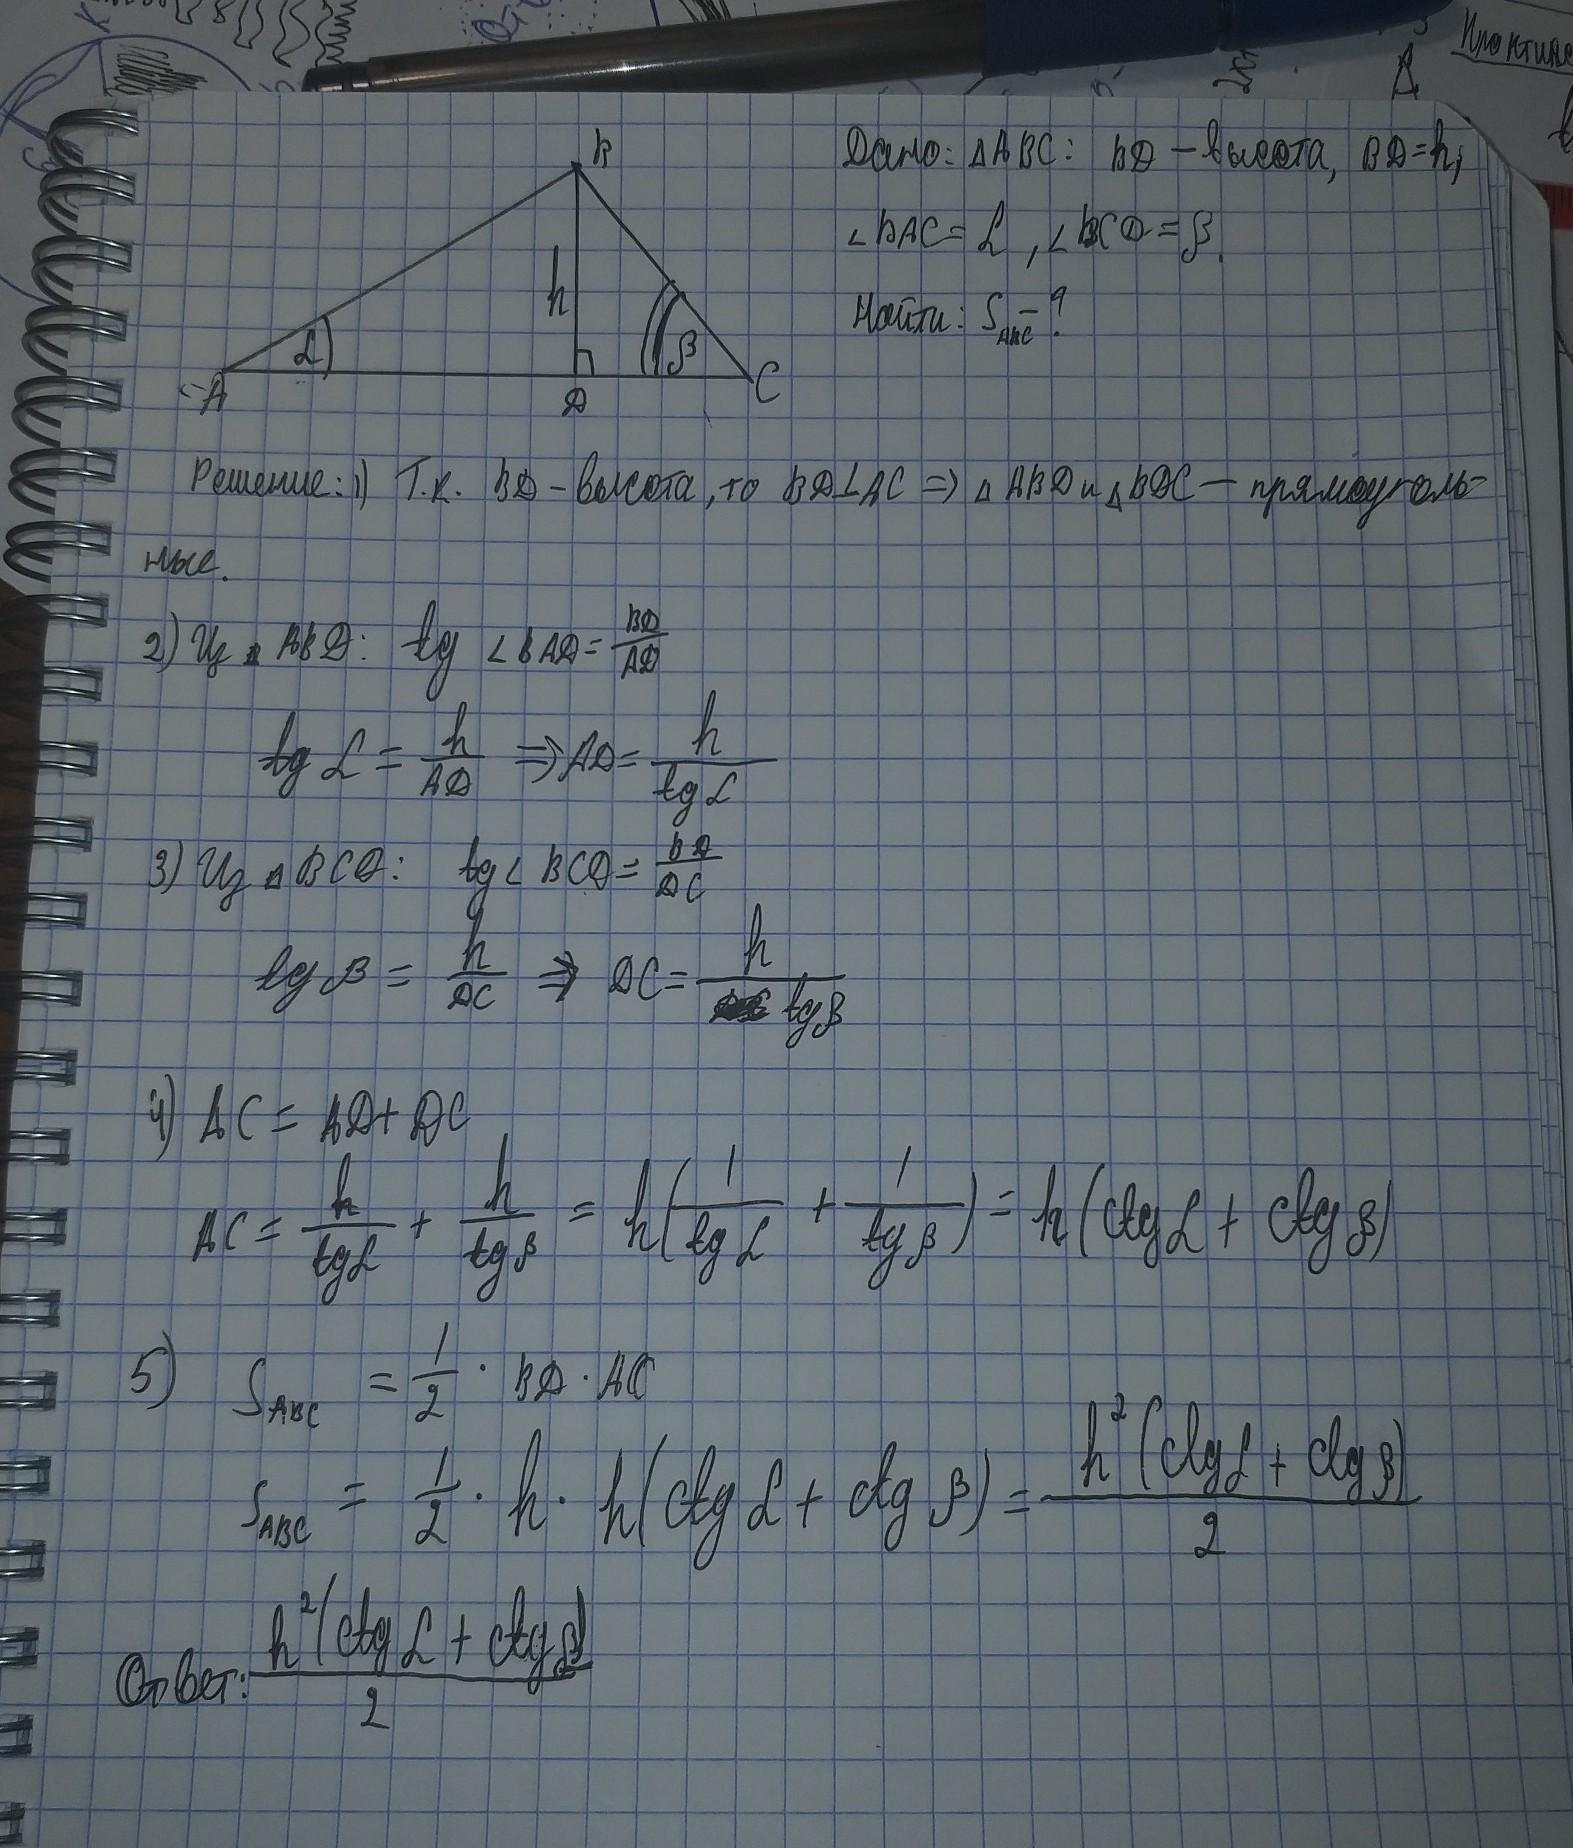 Практи
B
Дано: △ABC: BD – высота, BD = h,
∠BAC = α, ∠BCD = β.
h
Найти: S_ABC – ?
α
β
A
D
C
Решение: 1) Т.к. BD – высота, то BD⊥AC ⇒ △ABD и △BDC – прямоуголь-
ные.
2) Из △ABD: tg ∠BAD = BD/AD
tg α = h/AD ⇒ AD = h/tg α
3) Из △BCD: tg∠BCD = BD/DC
tg β = h/DC ⇒ DC = h/tg β
4) AC = AD + DC
AC = h/tg α + h/tg β = h(1/tg α + 1/tg β) = h(ctg α + ctg β)
5) S_ABC = 1/2 · BD · AC
S_ABC = 1/2 · h · h(ctg α + ctg β) = h²(ctg α + ctg β)/2
Ответ: h²(ctg α + ctg β)/2